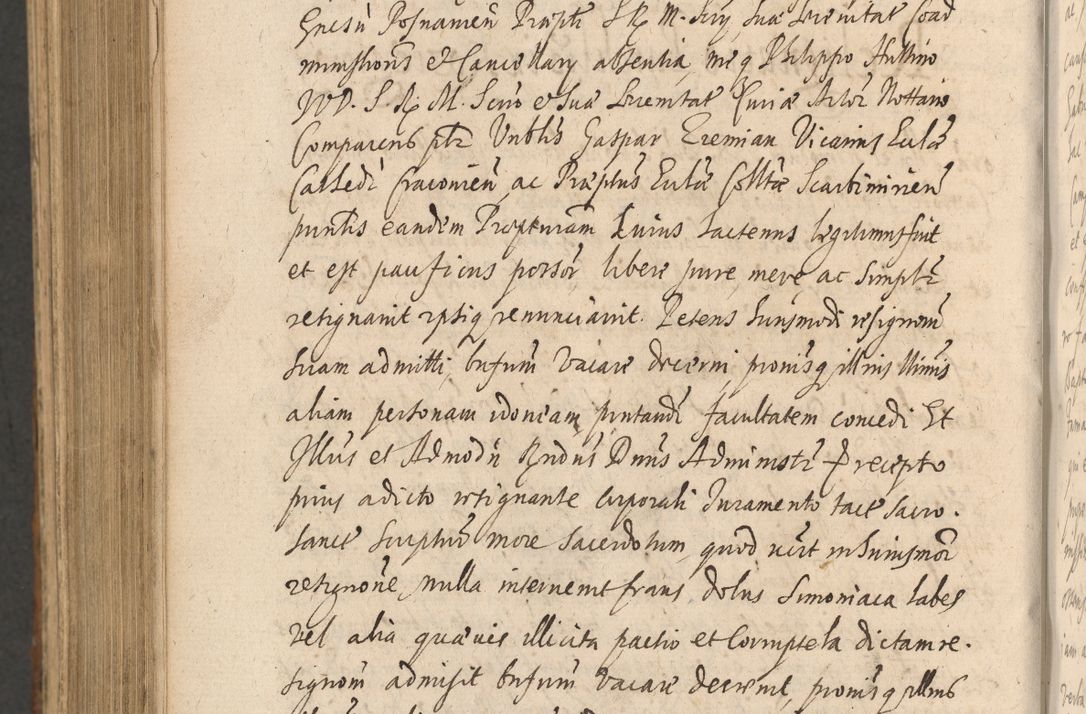 Gnesn̄ Posnanien̄ Præpti S R M. Sery Suæ Serenitat Coad
ministrioris et Cancellary absentia, meq Philippo Huttino
JVD. S. R. M. Scrio et Suæ Serenitat Curiæ Actor Nottario
Comparens pltr Vnblis Gaspar Zremian Vicarius Eulæ
Cathedi Cracouien̄ ac Præptus Eulæ Colltæ Scarbimirien̄
puntis eandem Præpturam cuius hactenus legitimus fuit
et est pacificus possor libere pure, mere ac Simpltr
resignauit ipsiq renunciauit. Petens huiusmodi resignonem
suam admitti, bnfium vacare decerni pronisq illius Illimis
aliam personam idoneam pntandi facultatem concedi Et
Illus et Admodn̄ Rndus Dnus Administr precepto
prius a dicto resignante corporali Juramento tact Sacro.
Sanct Scripturis more Sacerdotum, quod uert in huiusmoi
resignone nulla interuenit fraus dolus Simoniaca labes
vel alia quæuis illicita pactio et Corruptela dictam re.
signonem admisit bnfium vacare decreuit, pronisq illius